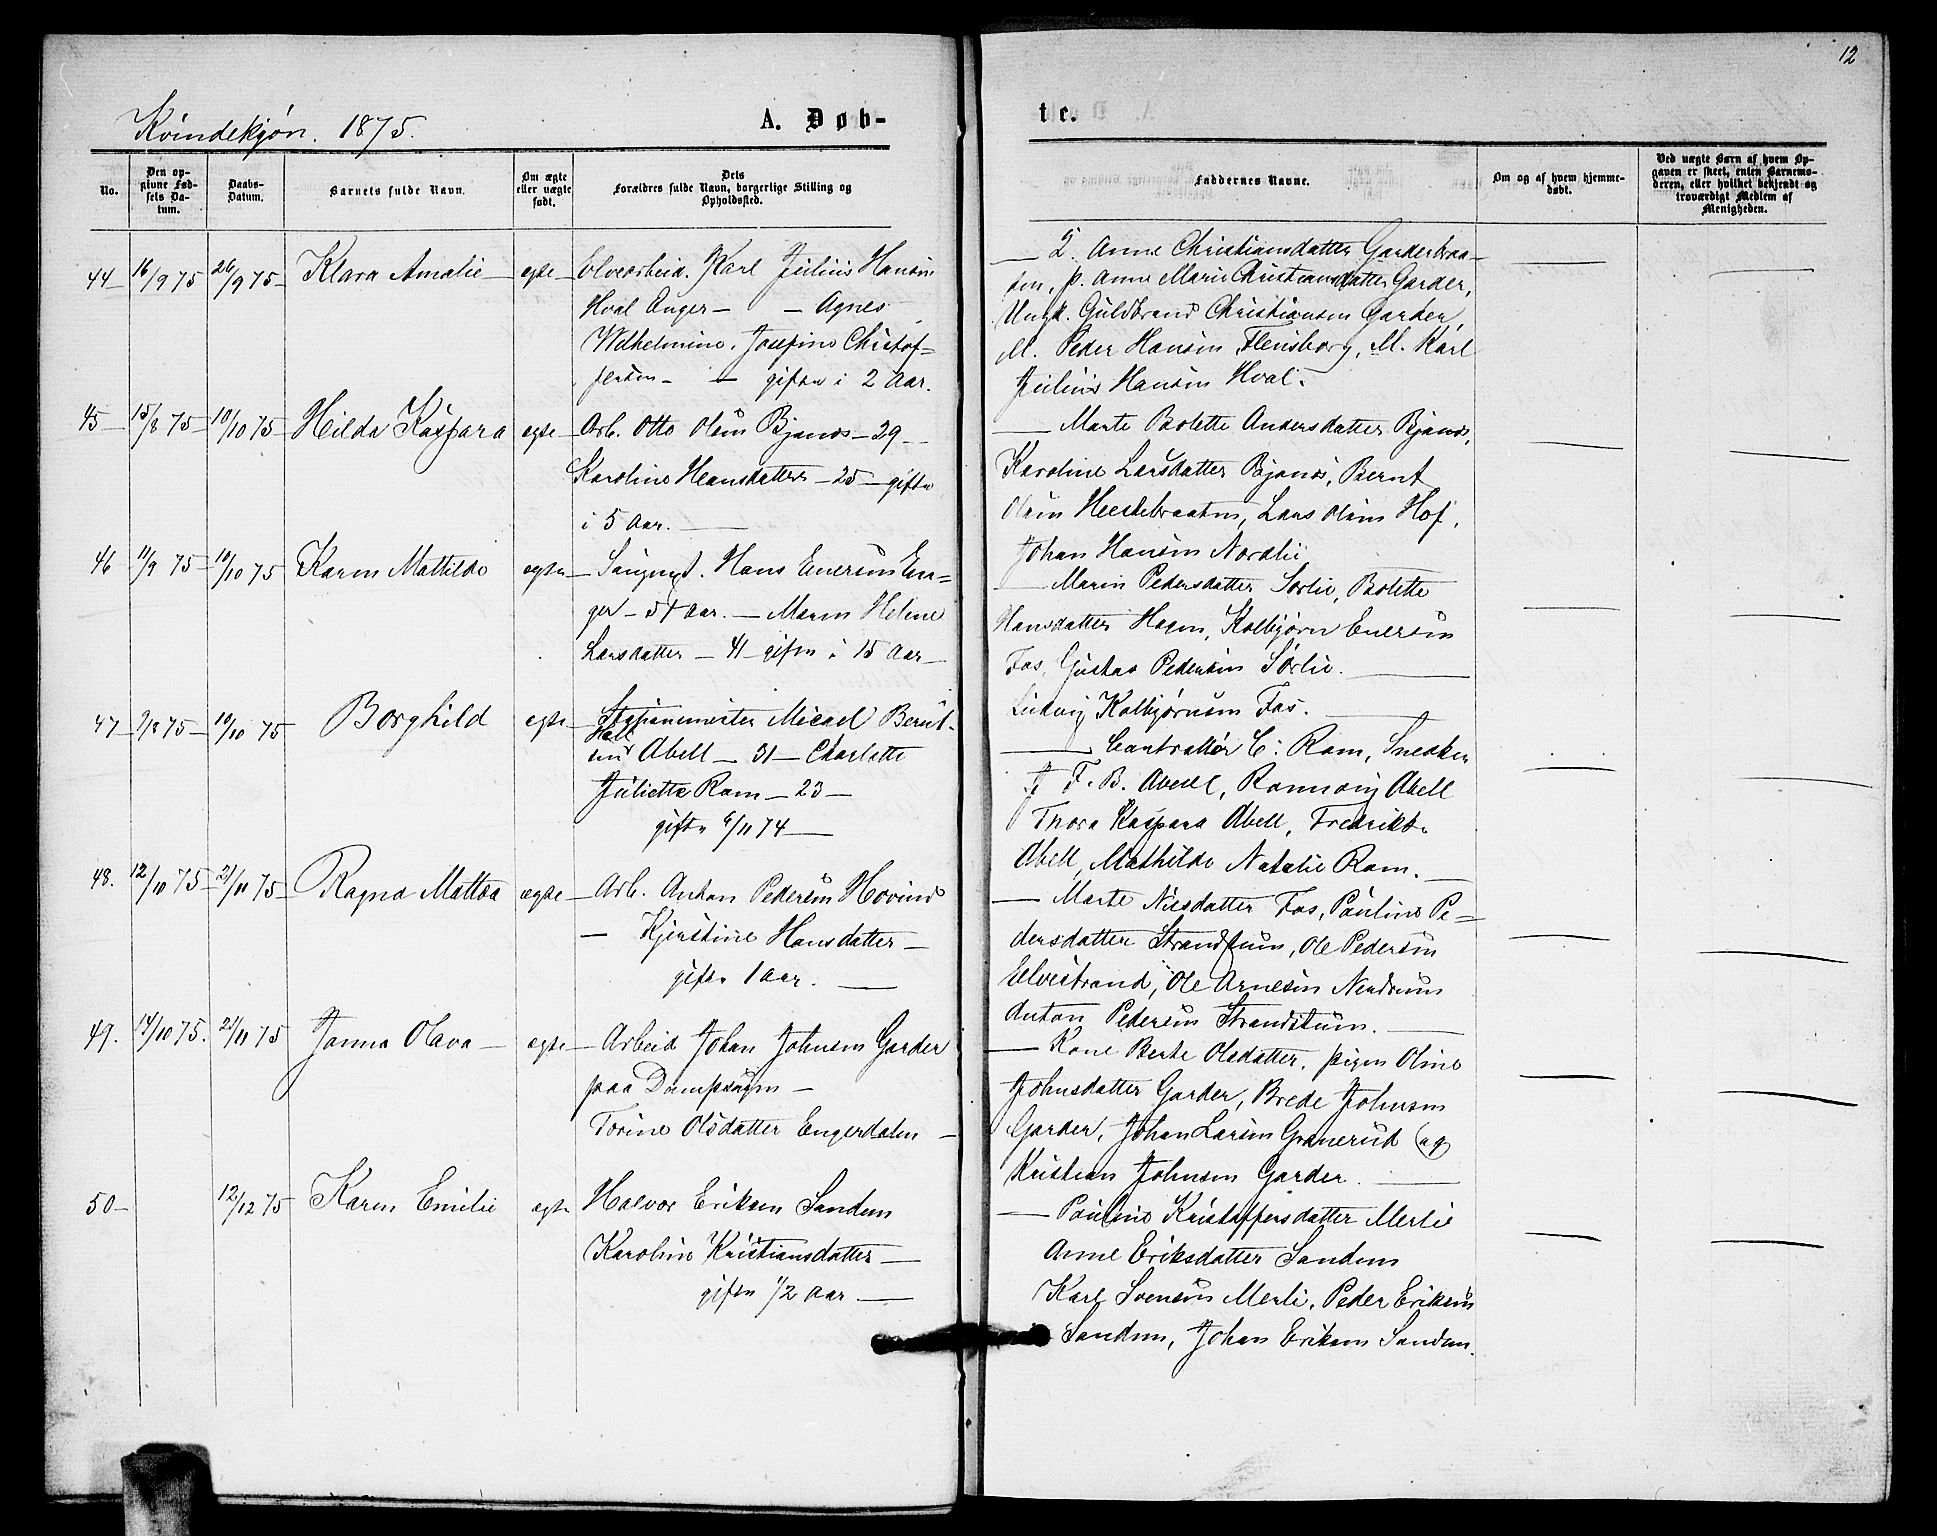 12
Kvindekjøn. 1875.
A. Døb-
te.
No.
Den op-
givne Fød-
sels Da-
tum.
Daabs-
Datum.
Barnets fulde Navn.
Om ægte
eller uægte
født.
Dets
Forældres fulde Navn, borgerlige Stilling og
Opholdssted.
Faddernes Navne.
Om og af hvem hjemme-
døbt.
Ved uægte Børn af hvem Op-
gaven er skeet, enten Barnemo-
deren, eller hvilket bekjendt og
troværdigt Medlem af
Menigheden.
44 16/9 75 26/9 75 Klara Amalie ægte
Elvearbeid. Karl Julius Hansen
Hval Enger - - Agnes
Wilhelmine Josefine Christof-
fersen - - gifte i 2 Aar.
Anne Christiansdatter Garderbraa-
ten, p. Anne Marie Christiansdatter Garder,
Ungk. Guldbrand Christiansen Garder,
M. Peder Hansen Flensborg, M. Karl
Julius Hansen Hval.
45 15/8 75 10/10 75 Hilda Kaspara ægte
Arb. Otto Olsen Bjanes - 29 -
Karoline Hansdatter - 25 - gifte
i 5 Aar.
Marte Bolette Andersdatter Bjanes,
Karoline Larsdatter Bjanes, Bernt
Olsen Heestebraaten, Lars Olsen Hof,
Johan Hansen Nordlie
46 11/9 75 10/10 75 Karen Mathilde ægte
Hans Enersen En-
ger - 54 Aar. - Maren Helene
Larsdatter - 41 gifte i 15 Aar
Maren Pedersdatter Sørlie, Bolette
Hansdatter Hagen, Kolbjørn Enersen
Fos, Gustav Pedersen Sørlie.
Ludvig Kolbjørnsen Fos.
47 9/8 75 10/10 75 Borghild ægte
Stationsmester Micael Bernt-
sen Hall Abell - 31 - Charlotte
Juliette Ram - 23 -
gifte 6/11 74
C. Ram, Snedker
F. B. Abell, Ronnaug Abell
Thora Kaspara Abell, Fredrikke
Abell, Mathilde Natalie Ram.
48. 12/10 75 21/11 75 Ragna Mattea ægte
Arb. Anton Pedersen Hovind
- Kjerstine Hansdatter -
gifte 1 Aar.
Marte Nilsdatter Fos, Pauline Pe-
dersdatter Strandstuen, Ole Pedersen
Elvestrand, Ole Arnesen Nordrum
Anton Pedersen Strandstuen.
49. 14/10 75. 21/11 75 Janna Olava ægte
Arbeid Johan Johnsen Garder
paa Dampsagen -
Torine Olsdatter Engerdalen -
Kone Berte Olsdatter, pigen Oline
Johnsdatter Garder, Brede Johnsen
Garder, Johan Larsen Granerud og
Kristian Johnsen Garder.
50 12/12 75 Karen Emilie ægte
Halvor Eriksen Sandum
Karoline Kristiansdatter
gifte 1/2 Aar
Pauline Kristoffersdatter Merlie
Anne Eriksdatter Sandum
Karl Svensen Merli, Peder Eriksen
Sandum, Johan Eriksen Sandum.